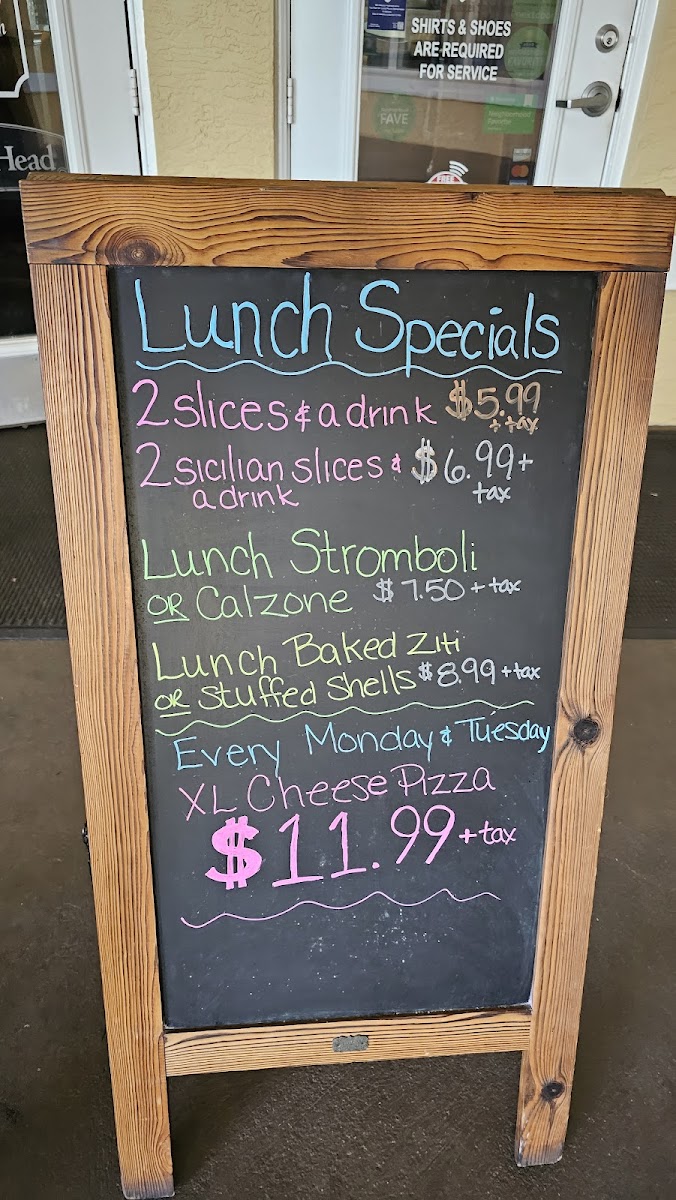 SHIRTS & SHOES
ARE REQUIRED
FOR SERVICE
FAVE
Head
FREE
Lunch Specials
2 slices & a drink $5.99
+ tax
2 sicilian slices & $6.99+
a drink tax
Lunch Stromboli
OR Calzone $7.50 + tax
Lunch Baked Ziti
OR Stuffed Shells $8.99 + tax
Every Monday & Tuesday
XL Cheese Pizza
$11.99 + tax